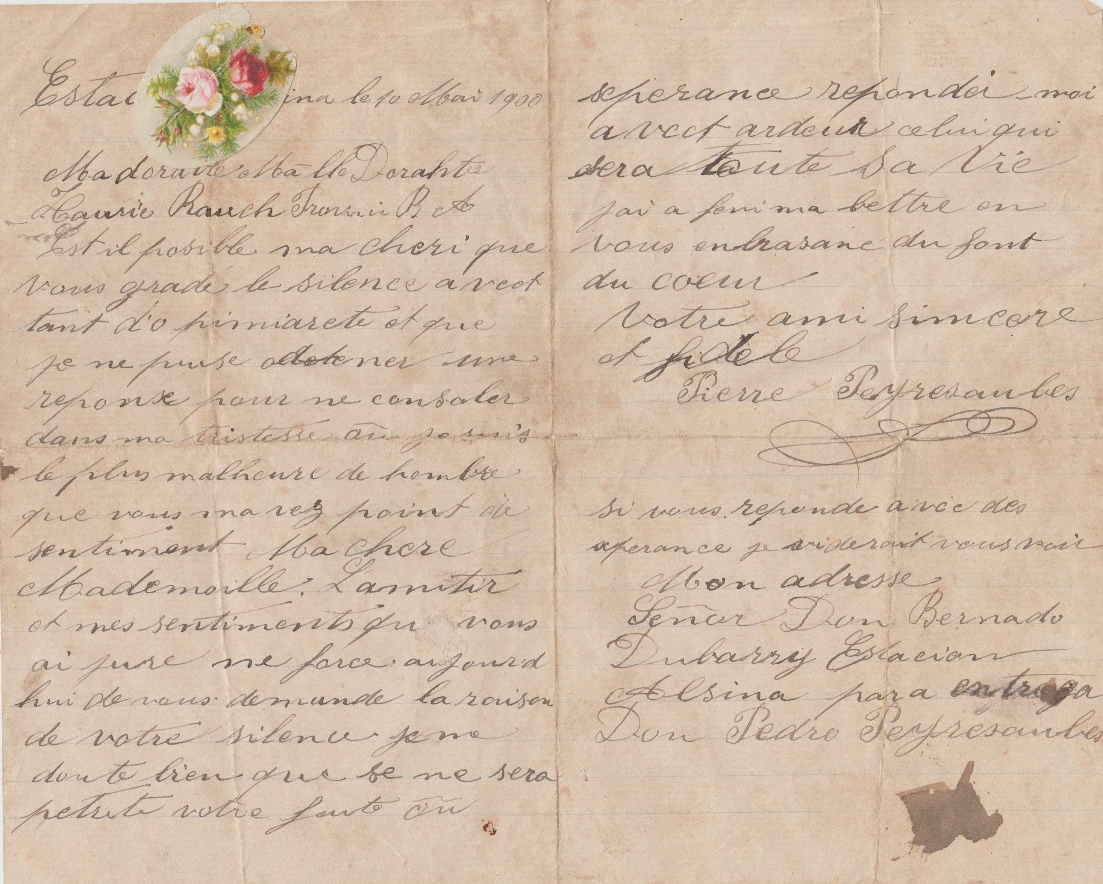 Estac ina le 10 Mai 1900
Madoravé Malle Dorahte
Rauch B A
Est il posible ma cheri que
vous gradé le silence avect
tant d'o pimiareté et que
je ne puise obtener une
reponse pour me consoler
dans ma tristesse ou je suis
le plus malheure de hombre
que vous ma vez point de
sentiment Ma chere
Mademoille. Lamitir
et mes sentiments qu vous
ai jure me force aujourd
hui de vous demande la raison
de votre silence je me
doute bien que se ne sera
petrete votre faute ou
seperance repondei - moi
avect ardeur celui qui
sera toute sa vie
jai a feni ma lettre en
vous enbrasane du font
du coeur
Votre ami simcere
et fidele
Pierre Peyresaubes
si vous reponde avec des
sperance je vous voir
Mon adresse
Señor Don Bernado
Dubarry Estacion
Alsina para entrega
Don Pedro Peyresaubes